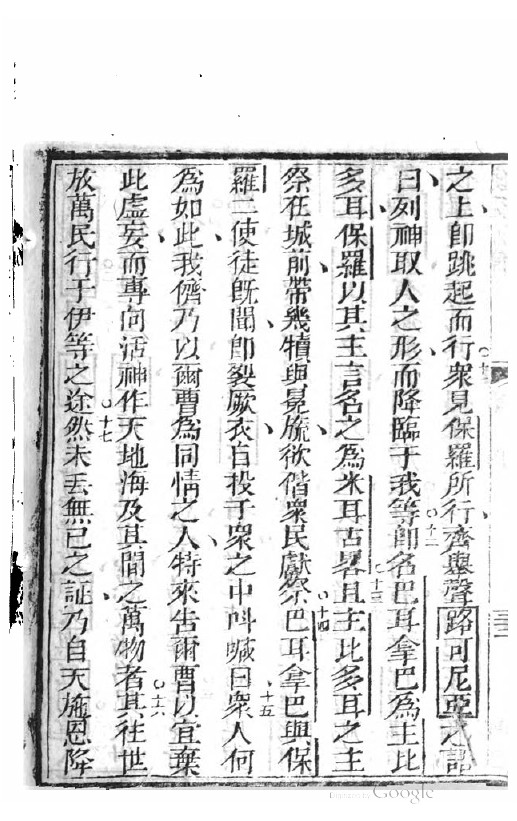 之上即跳起而行○十一衆見保羅所行齊舉聲路可尼亞之語
曰列神取人之形而降臨于我等○十二即名巴耳拿巴為主比
多耳保羅以其主言名之為米耳古畧○十三且主比多耳之主
祭在城前帶幾犢與冕旒欲偕衆民獻祭○十四巴耳拿巴與保
羅二使徒既聞即裂厥衣自投于衆之中呌喊曰○十五衆人何
為如此我儕乃以爾曹為同情之人特來告爾曹以宜棄
此虛妄而專向活神作天地海及其間之萬物者○十六其往世
放萬民行于伊等之途○十七然未丟無己之証乃自天施恩降
Google